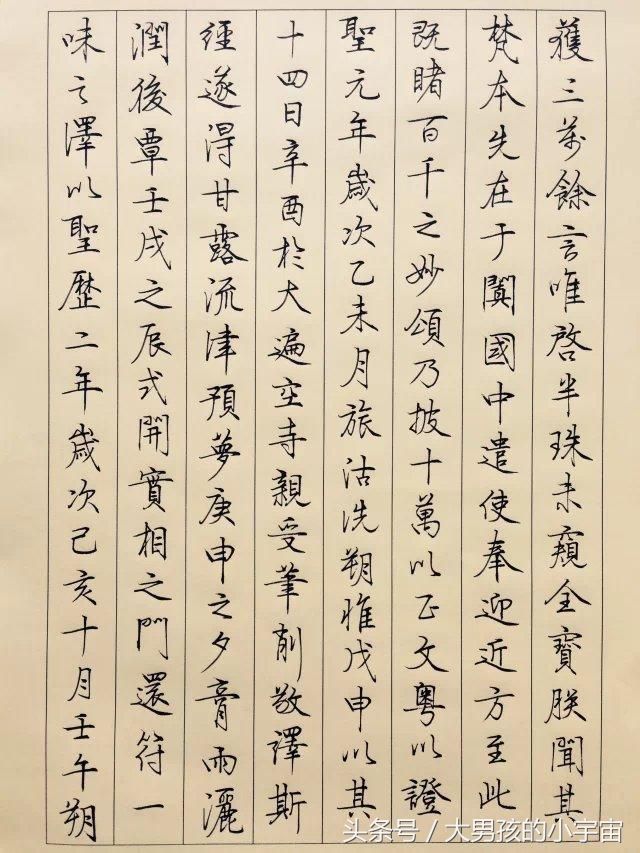 獲三萬餘言唯啓半珠未窺全寶朕聞其
梵本先在于闐國中遣使奉迎近方至此
既睹百千之妙頌乃披十萬以正文粵以證
聖元年歲次乙未月旅沽洗朔惟戊申以其
十四日辛酉於大遍空寺親受筆削敬譯斯
經遂得甘露流津預夢庚申之夕膏雨灑
潤後覃壬戌之辰式開實相之門還符一
味之澤以聖歷二年歲次己亥十月壬午朔
头条号／大男孩的小宇宙